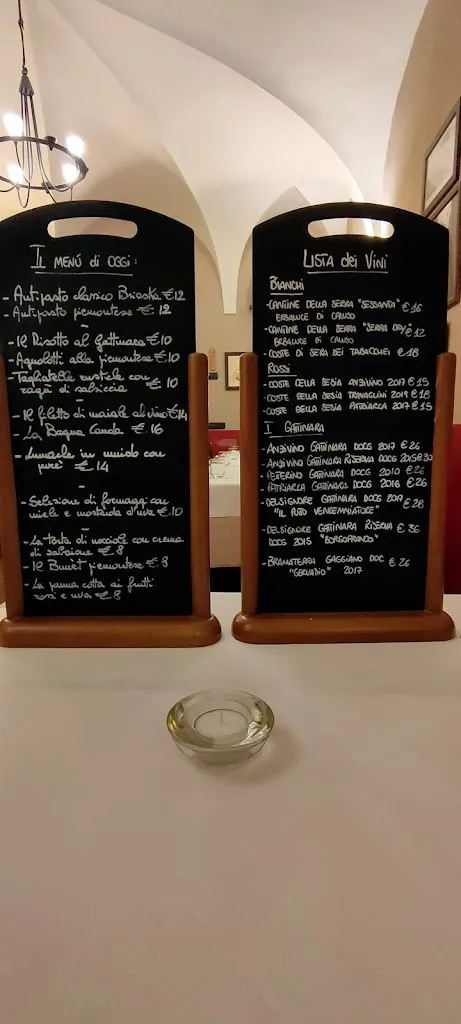 Il menù di oggi:
- Antipasto classico Brioska € 12
- Antipasto piemontese € 12
-
- Il Risotto al Gattinara € 10
- Agnolotti alla piemontese € 10
- Tagliatelle rustiche con
ragù di salsiccia € 10
-
- Il filetto di maiale al vino € 14
- La Bagna Cauda € 16
- in umido con
purè € 14
-
- Selezione di formaggi con
miele e mostarda d'uva € 10
-
- La torta di nocciole con crema
di zabaione € 8
- Il Bunet piemontese € 8
- La panna cotta ai frutti
rossi e uva € 8
Lista dei Vini
Bianchi
- Cantine della Serra "Sessanta" € 16
Erbaluce di Caluso
- Cantine della Serra "Serra Dry" € 17
Erbaluce di Caluso
- Coste di Sesia dei Tabacchei € 18
Rossi
- Coste della Sesia Anzivino 2017 € 15
- Coste della Sesia Travaglini 2017 € 18
- Coste della Sesia Patriarca 2017 € 15
I Gattinara
- Anzivino Gattinara DOCG 2017 € 26
- Anzivino Gattinara Riserva DOCG 2015 € 30
- Petterino Gattinara DOCG 2010 € 26
- Patriarca Gattinara DOCG 2016 € 26
- Delsignore Gattinara DOCG 2017 € 28
"Il Putto Vendemmiatore"
- Delsignore Gattinara Riserva € 36
DOCG 2015 "Borgofranco"
- Bramaterra Gaggiano DOC € 26
2017